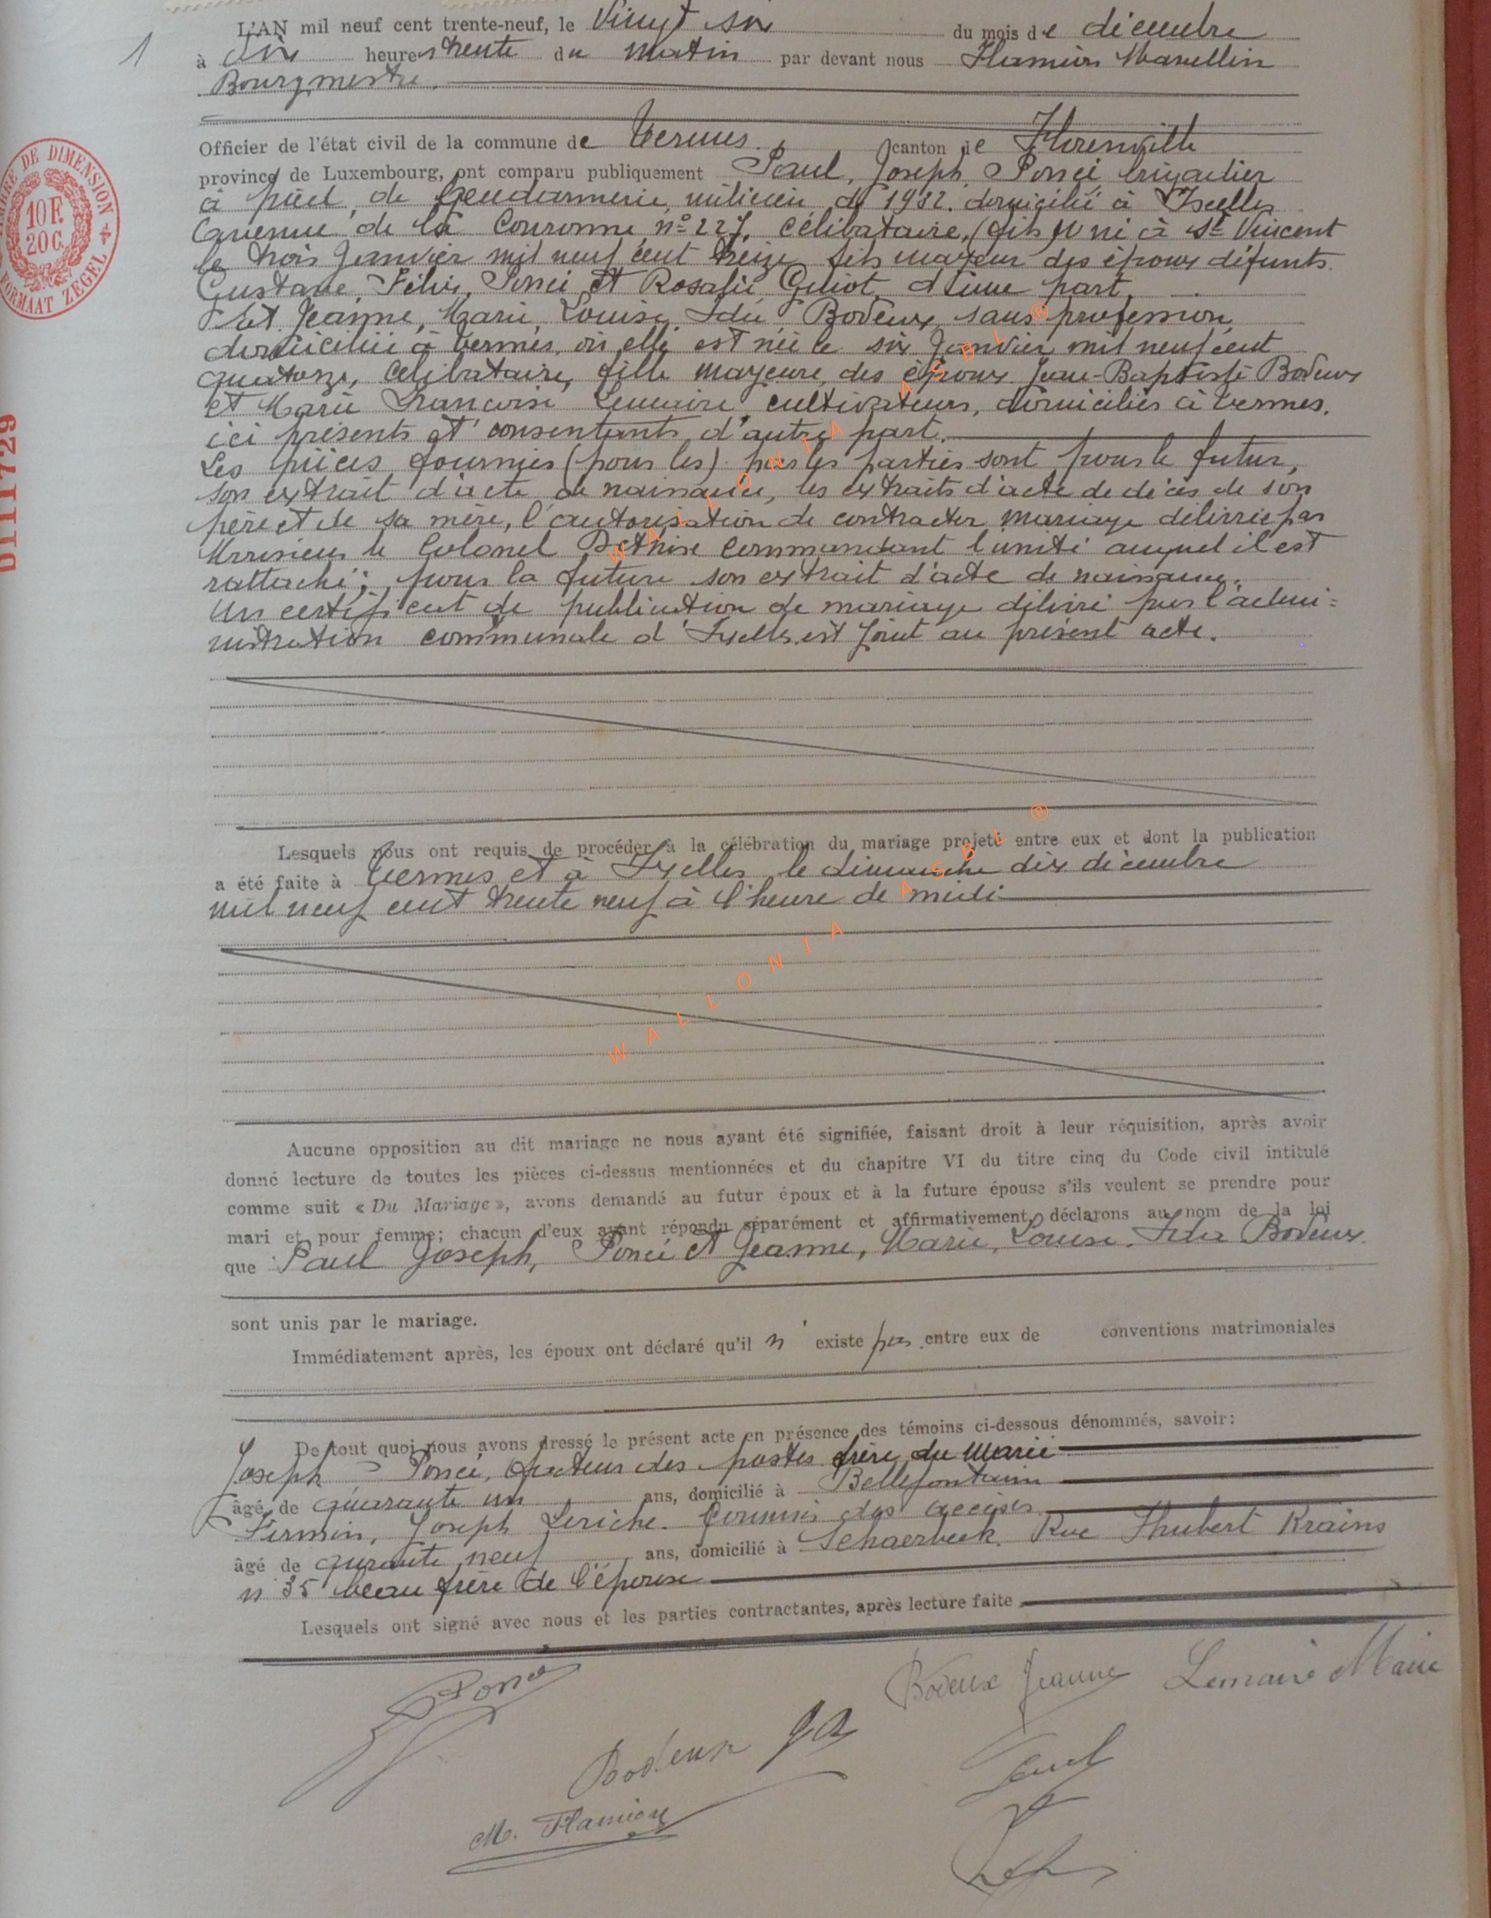 L'AN mil neuf cent trente-neuf, le Vingt six du mois de décembre
1
à dix heures trente du matin par devant nous Flamion Marcellin
Bourgmestre.
Officier de l'état civil de la commune de Termes. canton de Florenville
province de Luxembourg, ont comparu publiquement Paul, Joseph, Poncé brigadier
à pied, de Gendarmerie, milicien de 1932. domicilié à Ixelles
Avenue de la Couronne n° 227, célibataire, (fils) né à St Vincent
le trois Janvier mil neuf cent treize fils majeur des époux défunts
Gustave, Félix, Poncé et Rosalie Geliot, d'une part,
Et Jeanne, Marie, Louise, Ida Bodeux, sans profession,
domiciliée à Termes, où elle est née le six Janvier mil neuf cent
quatorze, célibataire, fille majeure, des époux Jean-Baptiste Bodeux
et Marie Françoise Lemaire, cultivateurs, domiciliés à Termes,
ici présents et consentants, d'autre part.
Les pièces fournies (pour les) par les parties sont pour le futur,
son extrait d'acte de naissance, les extraits d'acte de décès de son
père et de sa mère, l'autorisation de contracter mariage délivrée par
Monsieur le Colonel Dethise commandant l'unité auquel il est
rattaché; pour la future son extrait d'acte de naissance.
Un certificat de publication de mariage délivré par l'admi=
nistration communale d'Ixelles est joint au présent acte.
Lesquels nous ont requis de procéder à la célébration du mariage projeté entre eux et dont la publication
a été faite à Termes et à Ixelles, le dimanche dix décembre
mil neuf cent trente neuf à l'heure de midi
Aucune opposition au dit mariage ne nous ayant été signifiée, faisant droit à leur réquisition, après avoir
donné lecture de toutes les pièces ci-dessus mentionnées et du chapitre VI du titre cinq du Code civil intitulé
comme suit « Du Mariage », avons demandé au futur époux et à la future épouse s'ils veulent se prendre pour
mari et pour femme; chacun d'eux ayant répondu séparément et affirmativement, déclarons au nom de la loi
que Paul Joseph, Poncé et Jeanne, Marie, Louise, Ida Bodeux.
sont unis par le mariage.
Immédiatement après, les époux ont déclaré qu'il n' existe pas entre eux de conventions matrimoniales
De tout quoi nous avons dressé le présent acte en présence des témoins ci-dessous dénommés, savoir:
Joseph Poncé, facteur des postes frère du marié
âgé de quarante un ans, domicilié à Bellefontaine
Firmin, Joseph Leriche. Commis des accises
âgé de quarante neuf ans, domicilié à Schaerbeek. Rue Hubert Krains
n° 35 beau frère de l'épouse
Lesquels ont signé avec nous et les parties contractantes, après lecture faite
Poncé
Bodeux Jeanne
Lemaire Marie
Bodeux J B
M. Flamion
DE DIMENSION
10 F.
20 C.
FORMAAT ZEGEL
D111729
WALLONIA ASBL ®
WALLONIA ASBL ®